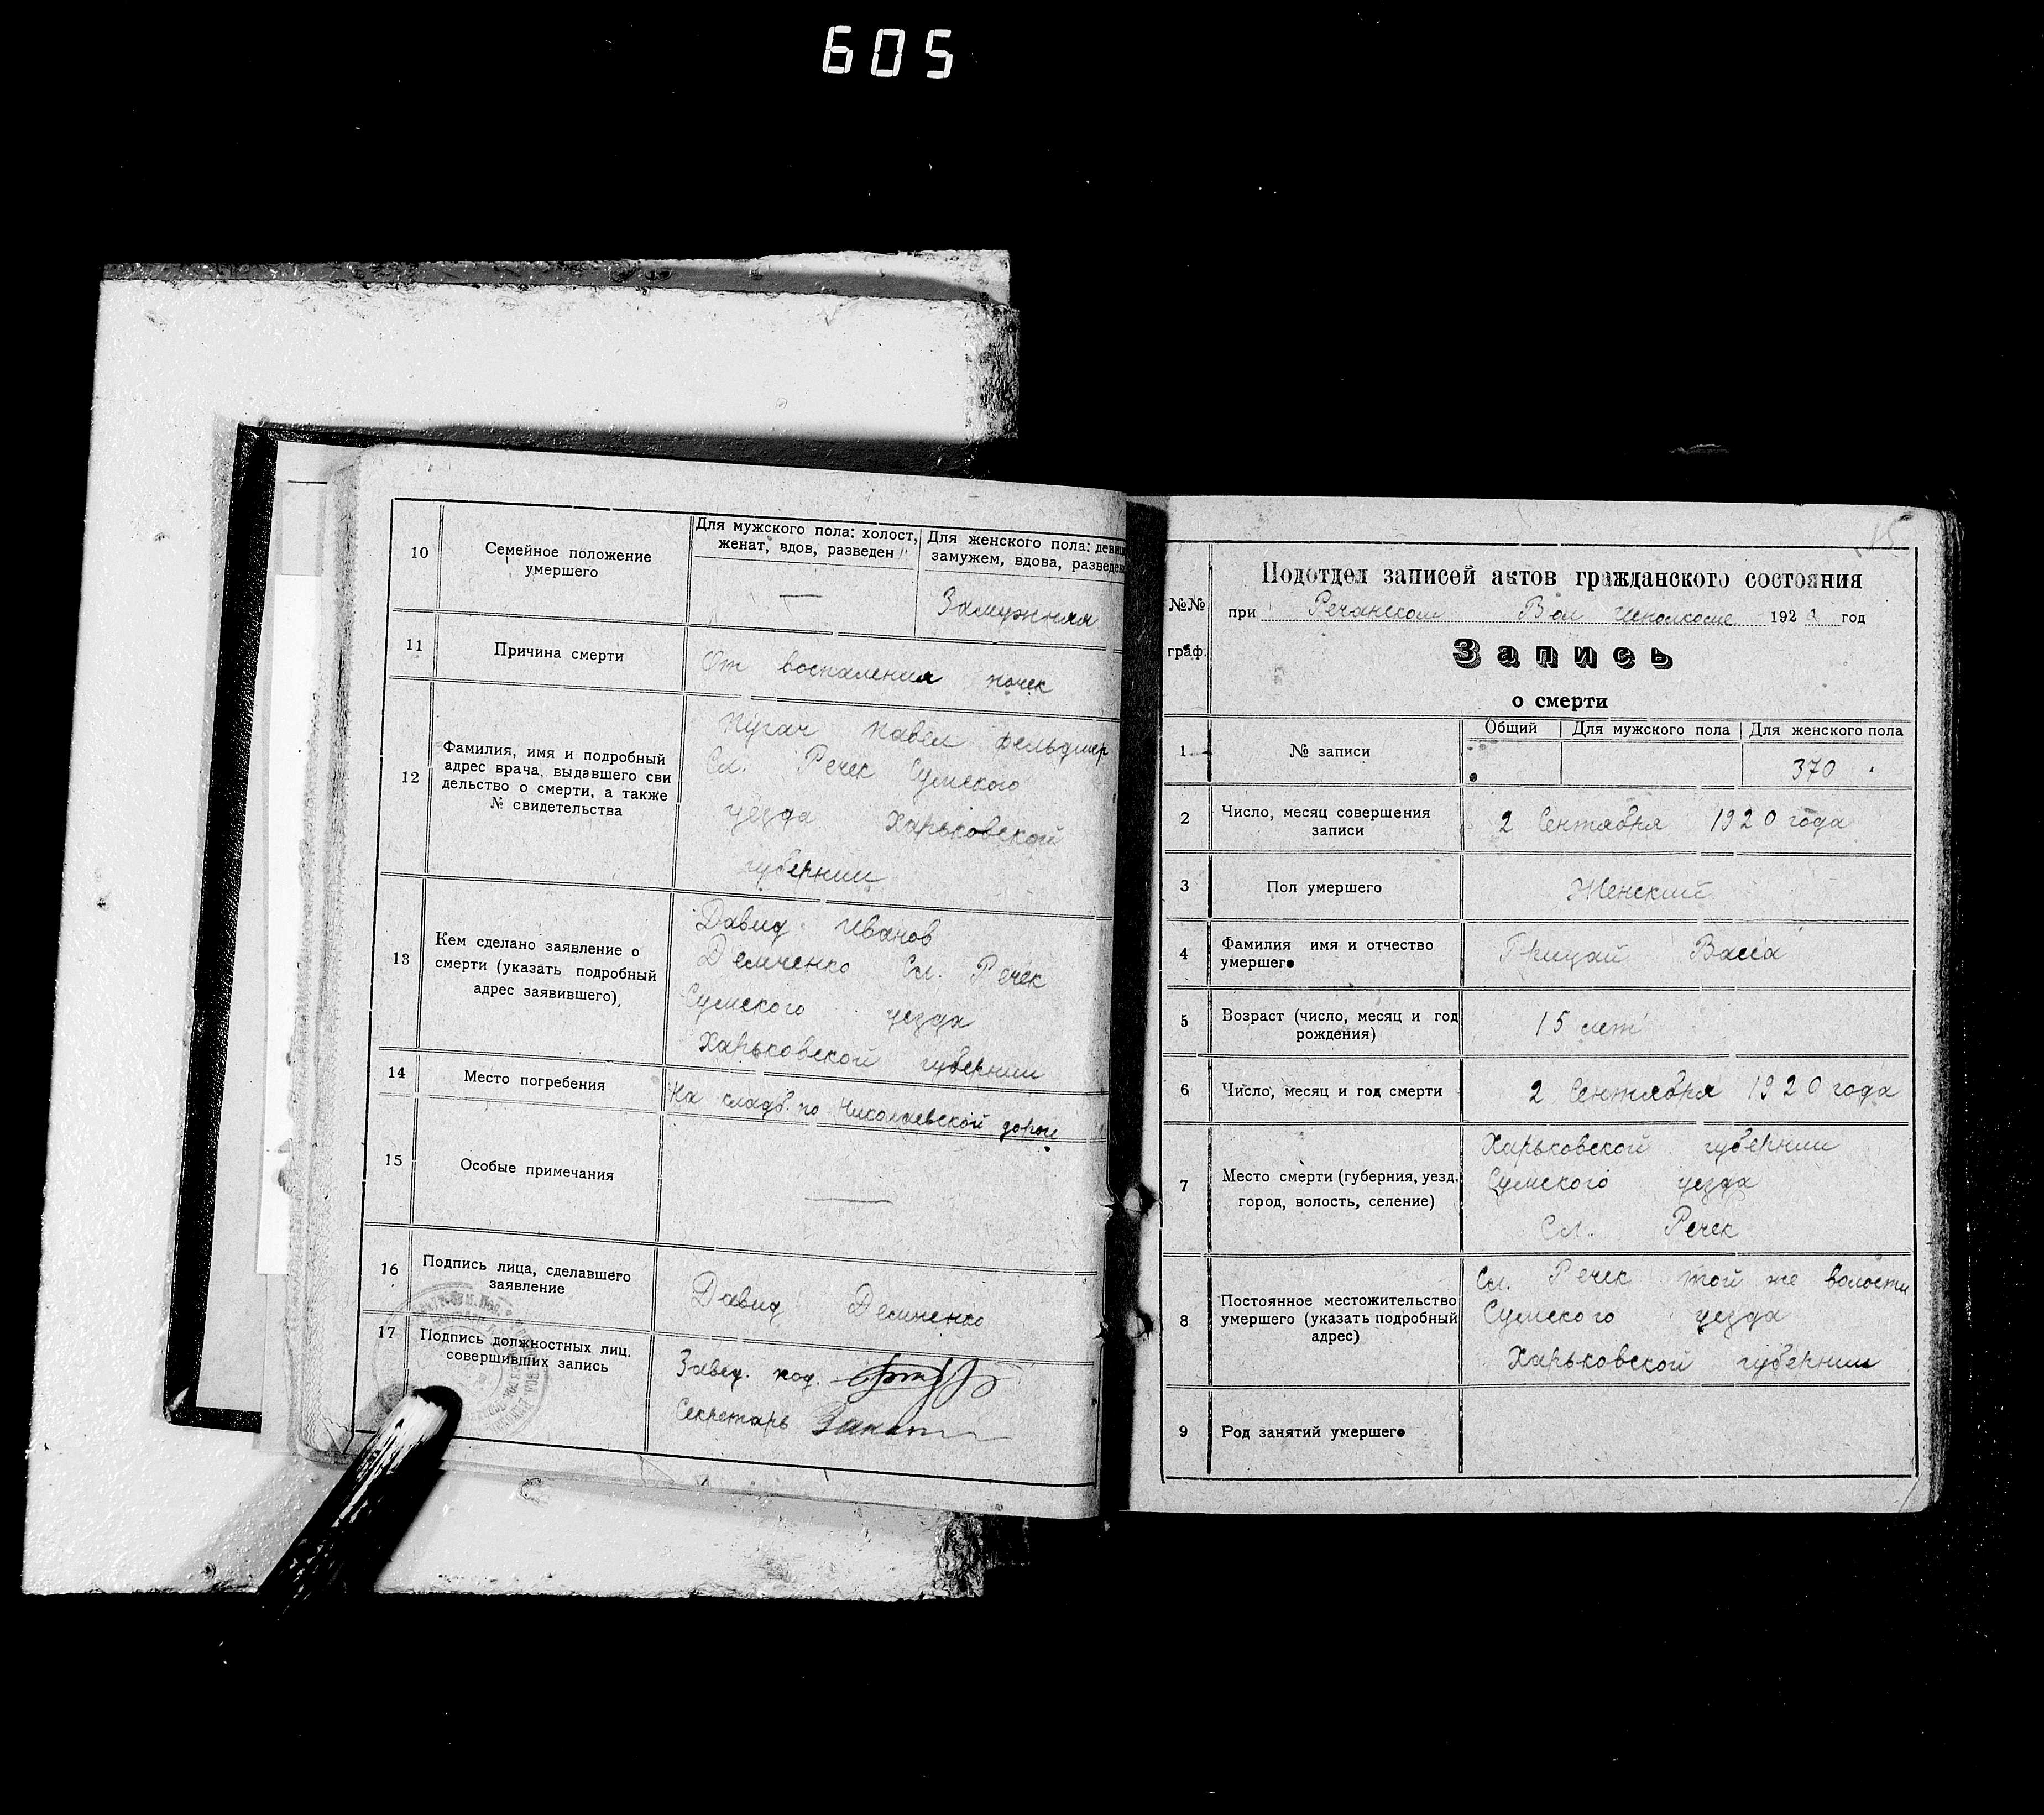 605
10
Семейное положение
умершего
Для мужского пола: холост,
женат, вдов, разведен
Для женского пола: девиц
замужем, вдова, разведен
—
Замужняя
11
Причина смерти
От воспаления почек
12
Фамилия, имя и подробный
адрес врача, выдавшего сви
дельство о смерти, а также
№ свидетельства
Пугач Павел фельдшер
Сл. Речек Сумского
уезда Харьковской
губернии
13
Кем сделано заявление о
смерти (указать подробный
адрес заявившего).
Давид Иванов
Демченко Сл. Речек
Сумского уезда
Харьковской губернии
14
Место погребения
На кладб. по Николаевской дороге
15
Особые примечания
—
16
Подпись лица, сделавшего
заявление
Давид Демченко
17
Подпись должностных лиц,
совершивших запись
Завед. под.
Секретарь
15
№№
граф.
Подотдел записей актов гражданского состояния
при Речанском Вол Исполкоме 1920 год
Запись
о смерти
1
№ записи
Общий
Для мужского пола
Для женского пола
370
2
Число, месяц совершения
записи
2 Сентября 1920 года
3
Пол умершего
Женский
4
Фамилия имя и отчество
умершего
Грицай Васса
5
Возраст (число, месяц и год
рождения)
15 лет
6
Число, месяц и год смерти
2 Сентября 1920 года
7
Место смерти (губерния, уезд,
город, волость, селение)
Харьковской губернии
Сумского уезда
Сл. Речек
8
Постоянное местожительство
умершего (указать подробный
адрес)
Сл. Речек той же волости
Сумского уезда
Харьковской губернии
9
Род занятий умершего